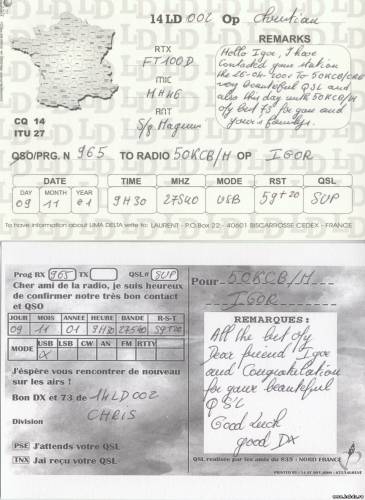 14 LD 002 Op Christian
RTX
FT100D
MIC
MH46
ANT
S/g Magnum
REMARKS
Hello Igor, I have
contacted your station
the 26-04-2001 To 50KCB/
very beautefull QSL and
also this day with 50KCB/H
of best 73 for you and
yours familys.
CQ 14
ITU 27
QSO/PRG. N 965 TO RADIO 50KCB/H OP IGOR
DATE TIME MHZ MODE RST QSL
DAY MONTH YEAR
09 11 01 9H30 27540 USB 59+20 SUP
To have information about LIMA DELTA write to: LAURENT - P.O.Box 22 - 40601 BISCARROSSE CEDEX - FRANCE
Prog RX 965 TX QSL# SUP
Cher ami de la radio, je suis heureux
de confirmer notre très bon contact
et QSO
JOUR MOIS ANNEE HEURE BANDE R-S-T
09 11 01 9H30 27540 59+20
MODE USB LSB CW AN FM RTTY
X
J'éspère vous rencontrer de nouveau
sur les airs !
Bon DX et 73 de 14LD002
CHRIS
Division
PSE J'attends votre QSL
TNX Jai reçu votre QSL
Pour 50KCB/H
IGOR
REMARQUES :
All the best of my
Dear friend Igor
and Congratulation
for your beautefull
QSL
Good Luck
good DX
QSL realisée par les amis du S35 - NORD FRANCE